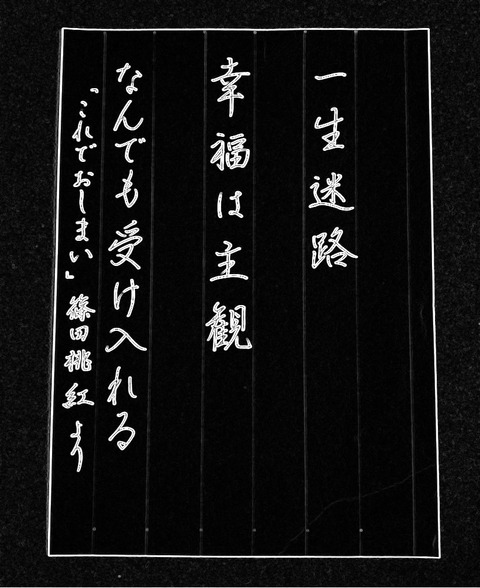 一生迷路
幸福は主観
なんでも受け入れる
「これでおしまい」篠田桃紅より